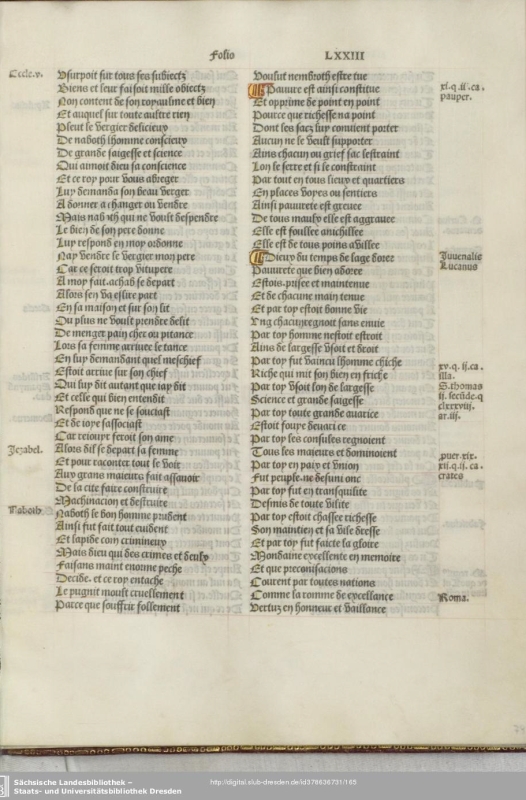 Folio LXXIII
Eccle.v.
Usurpoit sur tous ses subiectz
Biens et leur faisoit mille obiectz
Non content de son royaulme et bien
Et auquel sur toute aultre rien
Pleut le vergier delicieux
De naboth lhomme conscieux
De grande saigesse et science
Qui aimoit dieu sa conscience
Et ce roy pour vous abreger
Luy demanda son beau verger
A donner a changer ou vendre
Mais naboth qui ne voult despendre
Le bien de son pere donne
Luy respond en moy ordonne
Nay vendre le vergier mon pere
Car ce seroit trop vitupere
A moy fait.achab se depart
Alors sen va eslire part
En sa maison et sur son lit
Ou plus ne voult prendre delit
De menger pain cher ou pitance
Lors sa femme arriuee le tance
En luy demandant quel meschief
Estoit arriue sur son chief
Qui luy dit autant que iay dit
Et celle qui bien entendit
Respond que ne se souciast
Et de ioye sassociast
Car resiouyr feroit son ame
Jezabel.
Alors dil se depart sa femme
Et pour raconter tout le voir
Aux grans maieurs fait assauoir
De la cite faire construire
Machinacion et destruire
Naboth.
Naboth le bon homme prudent
Ainsi fut fait tout euident
Et lapide com crimineux
Mais dieu qui des crimes et deulx
Faisans maint enorme peche
Decide. et ce roy entache
Le pugnit moult cruellement
Parce que souffrir follement
Voulut nembroth estre tue
Pauure est ainsi constitue
xi.q.ii.ca.
pauper.
Et opprime de point en point
Pource que richesse na point
Dont les sacz luy conuient porter
Aucun ne le veult supporter
Ains chacun ou grief sac lestraint
Lon le serre et si le constraint
Par tout en tous lieux et quartiers
En places voyes ou sentiers
Ainsi pauurete est greuee
De tous maulx elle est aggrauee
Elle est foullee anichillee
Elle est de tous poins auillee
Dieux du temps de lage doree
Juuenalis
Lucanus
Pauurete que bien adoree
Estois.prisee et maintenue
Et de chacune main tenue
Et par toy estoit bonne vie
Ung chacun regnoit sans enuie
Par toy homme nestoit estroit
Ains de largesse vsoit et droit
Par toy fut vaincu lhomme chiche
xv.q.ii.ca.
illa.
Riche qui mit son bien en friche
Par toy vsoit lon de largesse
S.thomas
ii.secūde.q
clxxxviij.
ar.iii.
Science et grande saigesse
Par toy toute grande auarice
Estoit fouye deuant ce
Par toy les consules regnoient
Tous les maieurs et dominoient
puer.xix.
Par toy en paix et vnion
xii.q.ii.ca.
crates
Fut peuple.ne desunion
Par toy fut en transquilite
Desmis de toute vilite
Par toy estoit chassee richesse
Son maintien et sa vile dresse
Et par toy fut faicte la gloire
Mondaine excellente en memoire
Et que preconisacions
Courent par toutes nations
Comme la romme de excellance
Roma.
Vertuz en honneur et vaillance
Sächsische Landesbibliothek –
Staats- und Universitätsbibliothek Dresden
http://digital.slub-dresden.de/id378636731/165